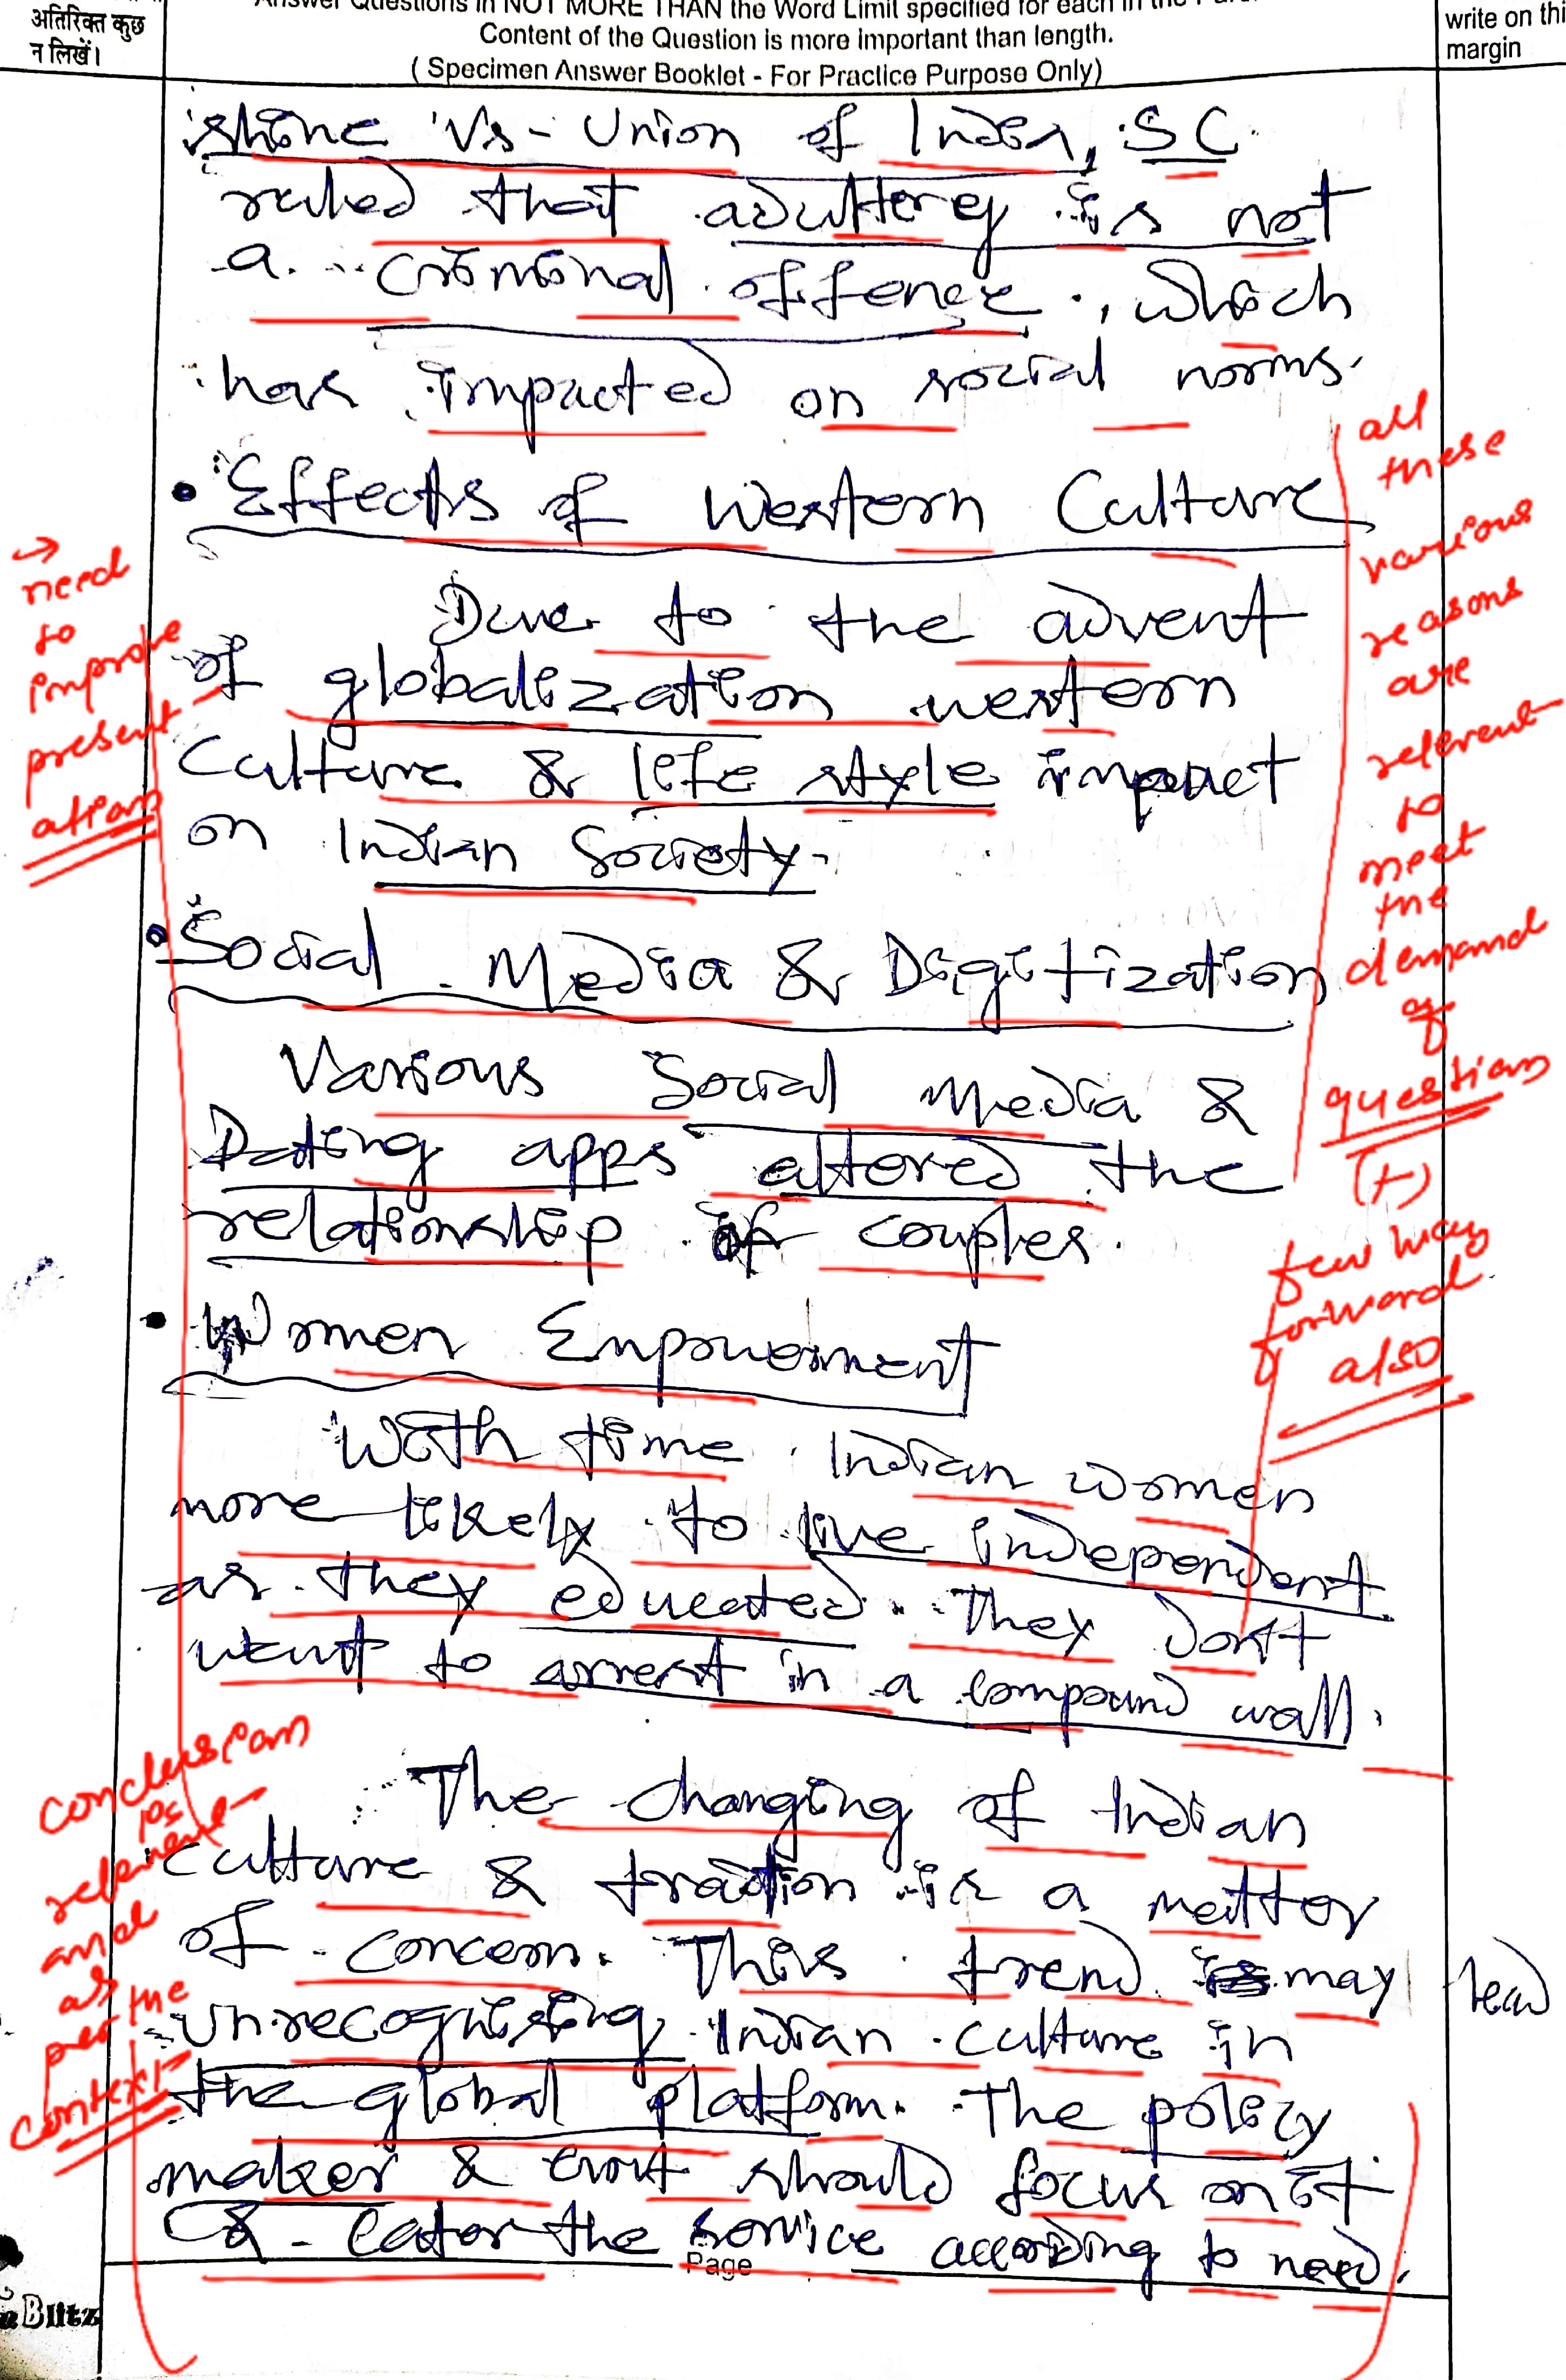 अतिरिक्त कुछ
न लिखें।
Answer Questions in NOT MORE THAN the Word Limit specified for each in the
Content of the Question is more important than length.
( Specimen Answer Booklet - For Practice Purpose Only)
write on thi
margin
shine Vs - Union of India, SC
ruled that adultery is not
a criminal offence, which
has impacted on social norms.
• Effects of Western Culture
Due to the advent
of globalization western
Culture & life style impact
on Indian Society.
• Social Media & Digitization
Various Social Media &
Dating apps altered the
relationship of couples.
• Women Empowerment
With time Indian women
more likely to live independent
as they educated. They don't
want to arrest in a compound wall.
The changing of Indian
culture & tradtion is a matter
of concern. This trend may lead
unrecognising Indian culture in
the global platform. The policy
maker & Govt should focus on it
& cater the service according to need.
→
need
to
improve
present-
ation
all
these
various
reasons
are
relevent
to
meet
the
demand
of
question
(+)
few way
forward
also
conclusion
is
relevent
and
as
per the
context
Page
Blitz